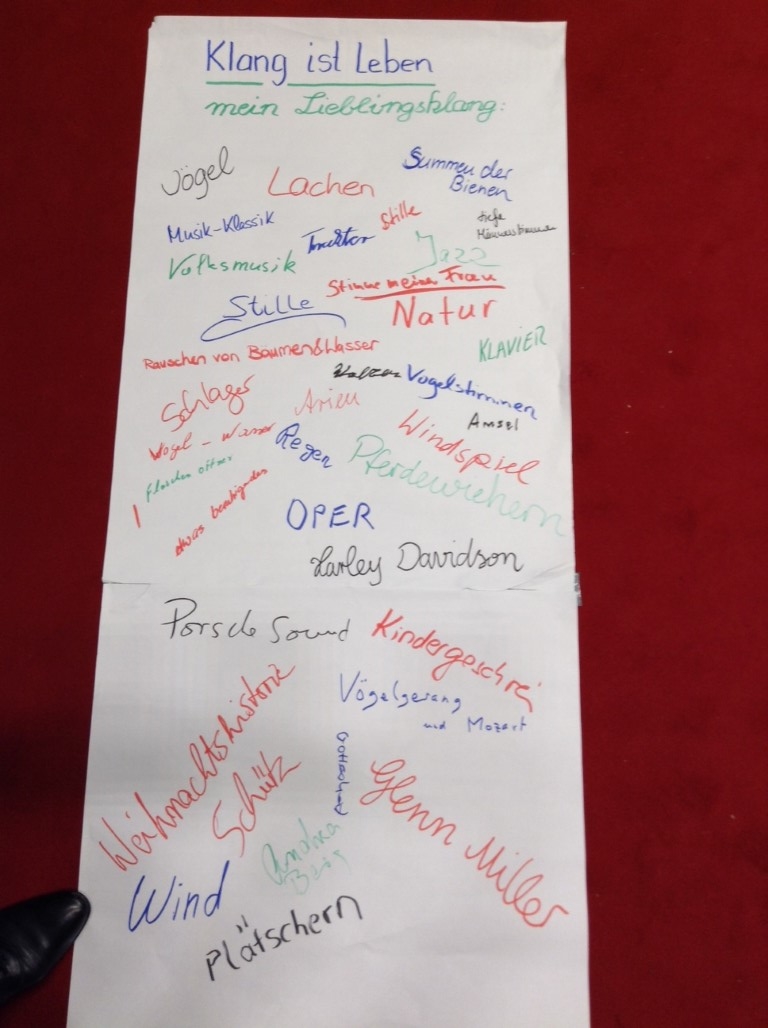 Klang ist Leben
mein Lieblingsklang:
Vögel
Lachen
Summen der
Bienen
Musik-Klassik
Stille
tiefe
Volksmusik
Jazz
Stimme meiner Frau
Stille
Natur
Rauschen von Bäumen & Wasser
KLAVIER
Vogelstimmen
Schlager
Arien
Amsel
Vogel - Wasser
Regen
Windspiel
Flaschen öffner
Pferdewiehern
etwas beruhigendes
OPER
Harley Davidson
Porsche Sound
Kindergeschrei
Vögelgesang
und Mozart
Weihnachtshistorie
Schütz
Glenn Miller
Andrea
Berg
Wind
Plätschern